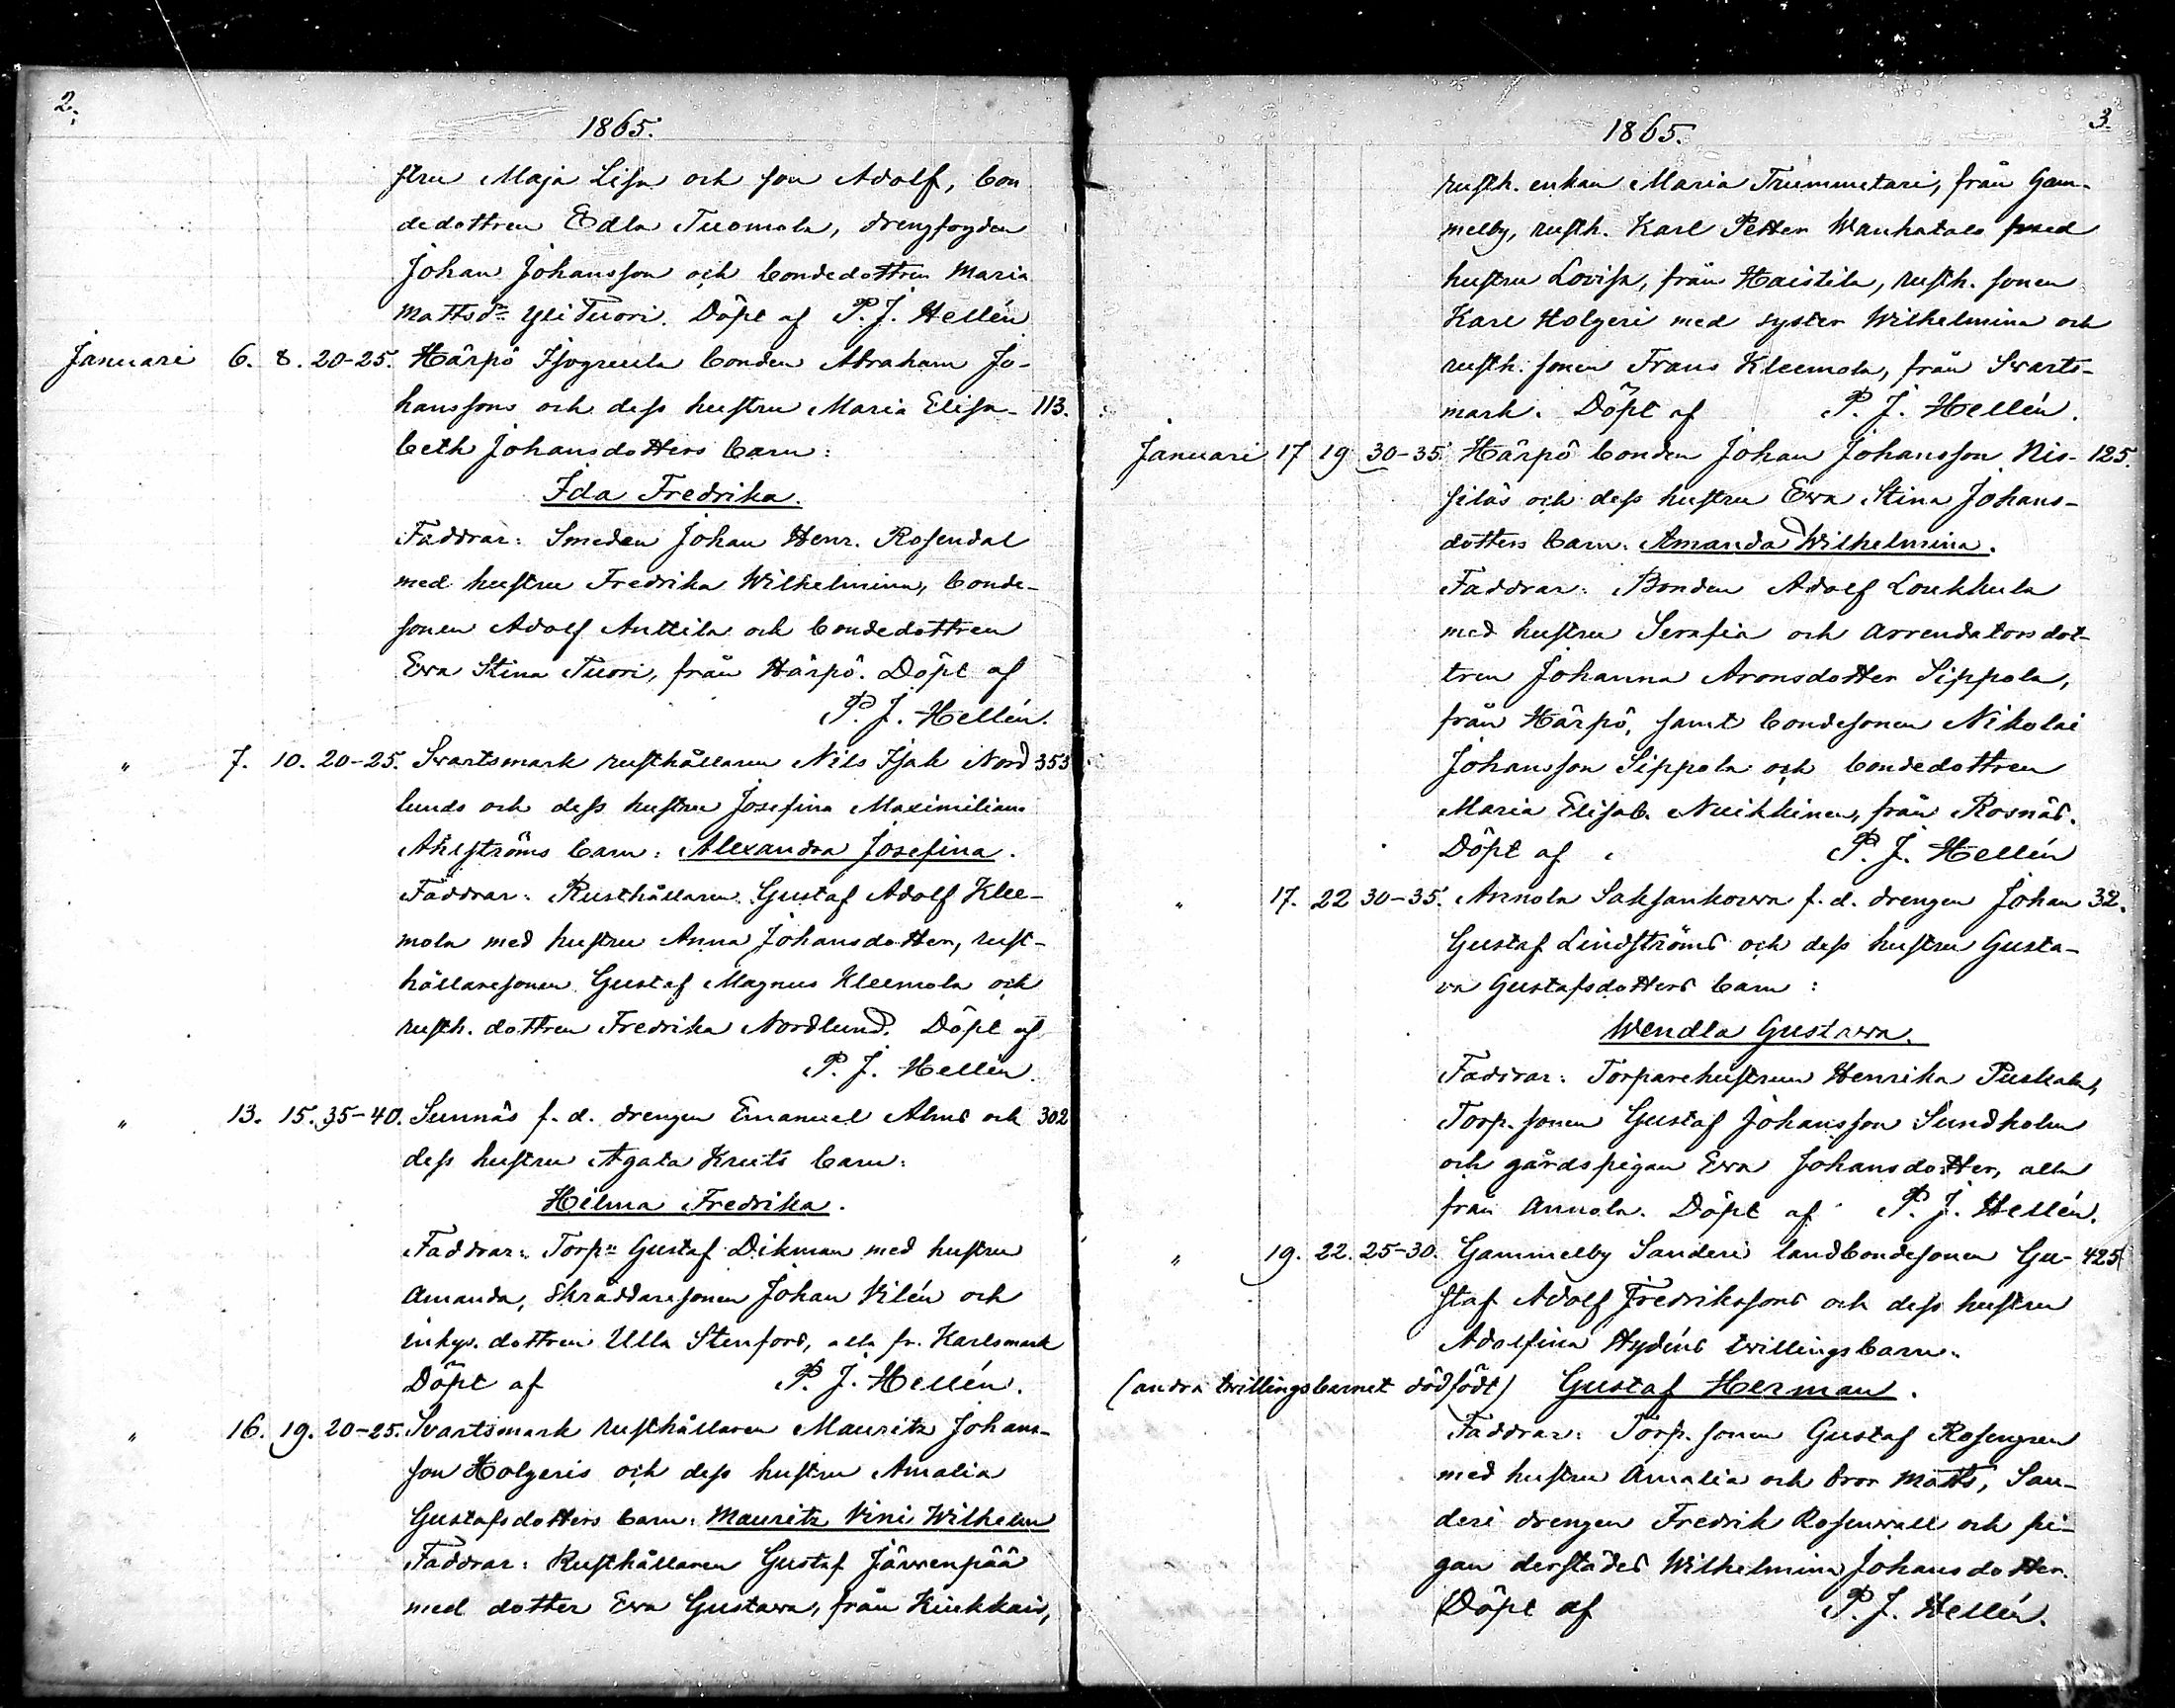 2.
1865.
stru Maja Lisa och son Adolf, bon
dedottren Edla Tuomola, drengfogden
Johan Johansson och bondedottren Maria
Mattsdr Yli Tuori. Döpt af P. J. Hellén
Januari 6. 8. 20-25. Härpö Isogruula bonden Abraham Jo-
hanssons och dess hustru Maria Elisa- 113.
beth Johansdotters barn:
Ida Fredrika.
Faddrar: Smeden Johan Henr. Rosendal
med hustru Fredrika Wilhelmina, bonde-
sonen Adolf Anttila och bondedottren
Eva Stina Tuori, från Härpö. Döpt af
P. J. Hellén.
" 7. 10. 20-25. Svartsmark rusthållaren Nils Isak Nord 353
lunds och dess hustru Josefina Maximiliana
Ahlströms barn: Alexandra Josefina.
Faddrar: Rusthållaren Gustaf Adolf Klee-
mola med hustru Anna Johansdotter, rust-
hållaresonen Gustaf Magnus Kleemola och
rusth. dottren Fredrika Nordlund. Döpt af
P. J. Hellén.
" 13. 15. 35-40. Sunnäs f. d. drengen Emanuel Alms och 302
dess hustru Agata Kruts barn:
Hilma Fredrika.
Faddrar: Torpn Gustaf Dikman med hustru
Amanda, Skräddaresonen Johan Vilén och
inhys. dottren Ulla Stenfors, alla fr. Karlsmark
Döpt af P. J. Hellén.
" 16. 19. 20-25. Svartsmark rusthållaren Mauritz Johans-
son Holgeris och dess hustru Amalia
Gustafsdotters barn: Mauritz Vini Wilhelm
Faddrar: Rusthållaren Gustaf Järvenpää
med dotter Eva Gustava, från Kiukkais,
3.
1865.
rusth. enkan Maria Trummetari, från Gam-
melby, rusth. Karl Petter Wanhatalo med
hustru Lovisa, från Haistila, rusth. sonen
Karl Holgeri med syster Wilhelmina och
rusth. sonen Frans Kleemola, från Svarts-
mark. Döpt af P. J. Hellén.
Januari 17 19 30-35. Härpö bonden Johan Johansson Nis- 125.
silas och dess hustru Eva Stina Johans-
dotters barn: Amanda Wilhelmina.
Faddrar: Bonden Adolf Loukkula
med hustru Serafia och arrendatorsdot-
tren Johanna Aronsdotter Sippola,
från Härpö, samt bondesonen Nikolai
Johansson Sippola och bondedottren
Maria Elisab. Nuikkinen, från Rosnäs.
Döpt af P. J. Hellén
" 17. 22 30-35. Annola Saksankorva f. d. drengen Johan 32.
Gustaf Lindströms och dess hustru Gusta-
va Gustafsdotters barn:
Wendla Gustava.
Faddrar: Torparehustrun Henrika Puskala,
Torp. sonen Gustaf Johansson Sundholm
och gårdspigan Eva Johansdotter, alla
från Annola. Döpt af P. J. Hellén.
" 19. 22. 25-30. Gammelby Sanderi landbondesonen Gu- 425
staf Adolf Fredrikssons och dess hustru
Adolfina Hydéns twillingsbarn:
(andra twillingsbarnet dödfödt) Gustaf Herman.
Faddrar: Torp. sonen Gustaf Rosengren
med hustru Amalia och bror Matts, San-
deri drengen Fredrik Rosenwall och pi-
gan derstädes Wilhelmina Johansdotter.
Döpt af P. J. Hellén.